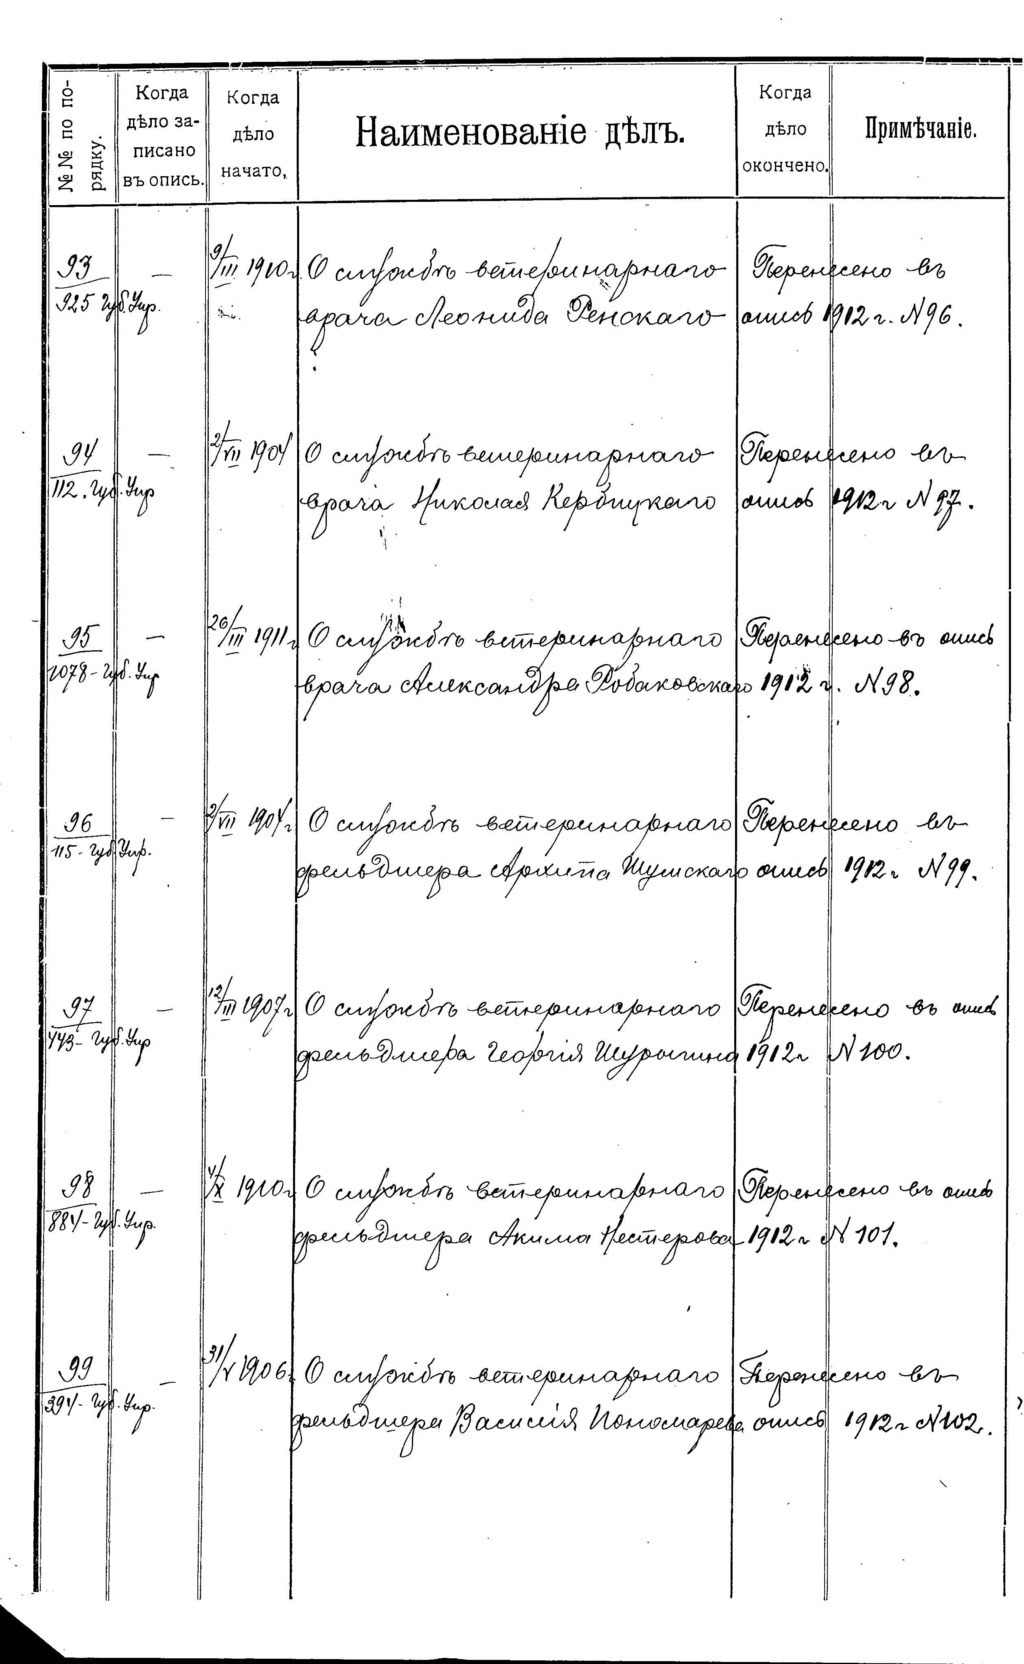 №№ по по-
рядку.
Когда
дѣло за-
писано
въ опись.
Когда
дѣло
начато.
Наименованіе дѣлъ.
Когда
дѣло
окончено.
Примѣчаніе.
93 — 9/III 1910 г. О службѣ ветеринарнаго Перенесено въ
925 Губ. Упр. врача Леонида Ренскаго опись 1912 г. N 96.
94 — 2/VII 1904 О службѣ ветеринарнаго Перенесено въ
112. Губ. Упр врача Николая Кербицкаго опись 1912 г N 97.
95 — 26/III 1911 г О службѣ ветеринарнаго Перенесено въ опись
1078 - Губ. Упр врача Александра Робаковскаго 1912 г. N 98.
96 — 2/VII 1904 г О службѣ ветеринарнаго Перенесено въ
115 - Губ. Упр. фельдшера Архипа Шумскаго опись 1912 г N 99.
97 — 12/III 1907 г О службѣ ветеринарнаго Перенесено въ опись
443 - Губ. Упр фельдшера Георгія Шурыгина 1912 г N 100.
98 — 1910 г О службѣ ветеринарнаго Перенесено въ опись
884 - Губ. Упр. фельдшера Акима Нестерова 1912 г N 101.
99 — 31/V 1906 О службѣ ветеринарнаго Перенесено въ
394 - Губ. Упр. фельдшера Василія Пономарева опись 1912 г N 102.